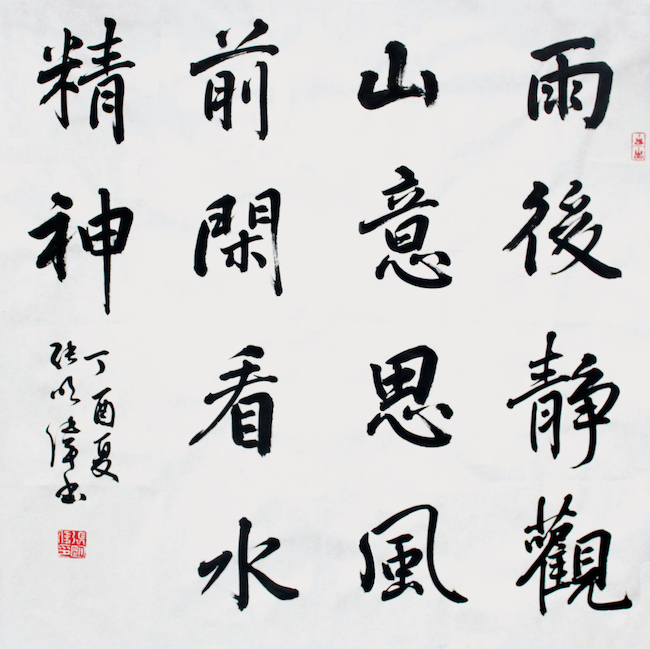 雨後静觀
山意思風
前閑看水
精神
丁酉夏
張明偉书